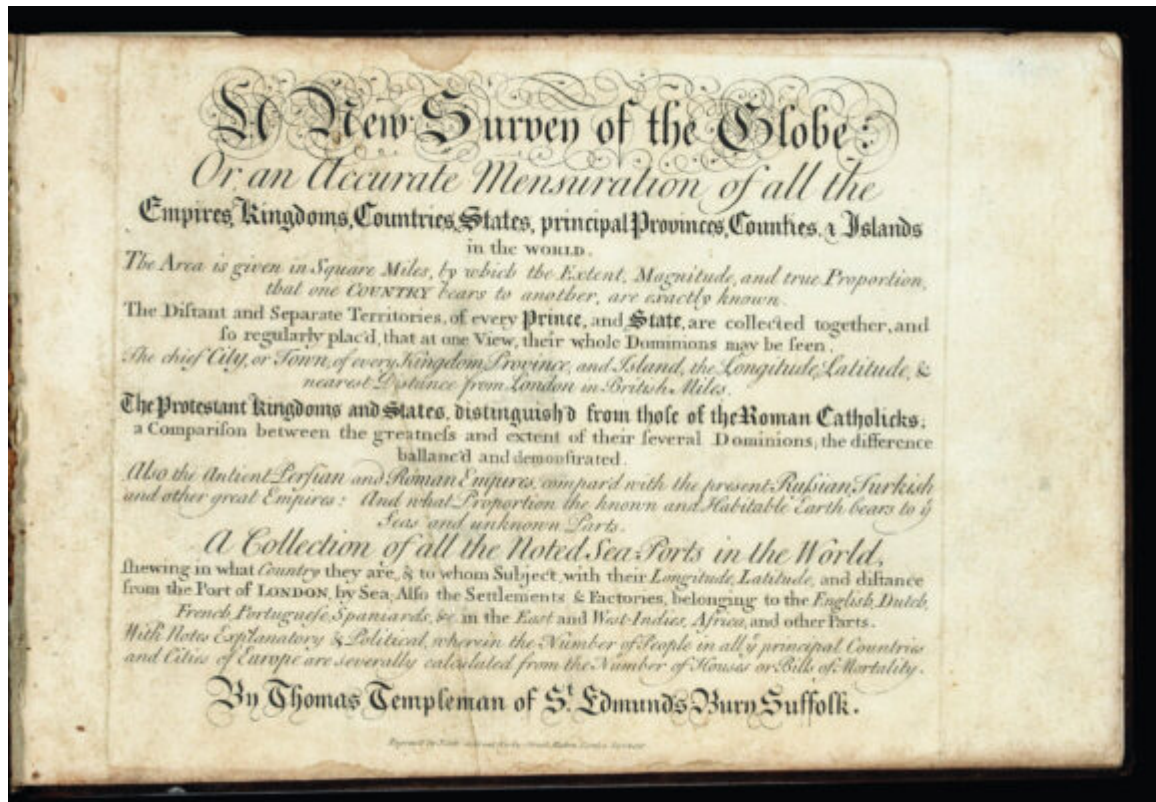 A New Survey of the Globe:
Or, an Accurate Mensuration of all the
Empires, Kingdoms, Countries, States, principal Provinces, Counties, & Islands
in the WORLD.
The Area is given in Square Miles, by which the Extent, Magnitude, and true Proportion,
that one COUNTRY bears to another, are exactly known.
The Distant and Separate Territories, of every Prince, and State, are collected together, and
so regularly plac'd, that at one View, their whole Dominions may be seen.
The chief City, or Town, of every Kingdom, Province, and Island, the Longitude, Latitude, &
nearest Distance from London in British Miles.
The Protestant Kingdoms and States, distinguish'd from those of the Roman Catholicks;
a Comparison between the greatness and extent of their several Dominions, the difference
ballanc'd and demonstrated.
Also the Antient Persian and Roman Empires, compar'd with the present Russian, Turkish
and other great Empires: And what Proportion the known and Habitable Earth bears to ye
Seas and unknown Parts.
A Collection of all the Noted Sea Ports in the World,
shewing in what Country they are, & to whom Subject, with their Longitude, Latitude, and distance
from the Port of LONDON, by Sea, Also the Settlements & Factories, belonging to the English, Dutch,
French, Portuguese, Spaniards, &c. in the East and West-Indies, Africa, and other Parts.
With Notes Explanatory & Political, wherein the Number of People in all ye principal Countries
and Cities of Europe are severally calculated from the Number of Houses or Bills of Mortality.
By Thomas Templeman of St. Edmunds Bury Suffolk.